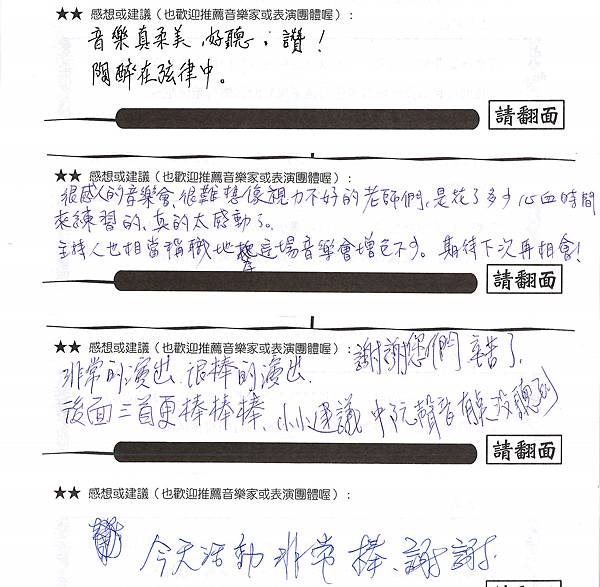 ★★ 感想或建議（也歡迎推薦音樂家或表演團體喔）：
音樂真柔美，好聽；讚！
陶醉在弦律中。
請翻面
★★ 感想或建議（也歡迎推薦音樂家或表演團體喔）：
很感人的音樂會，很難想像視力不好的老師們，是花了多少心血時間
來練習的，真的太感動了。
主持人也相當稱職地把這場音樂會增色不少。期待下次再相會！
請翻面
★★ 感想或建議（也歡迎推薦音樂家或表演團體喔）：
非常的演出、很棒的演出. 謝謝您們辛苦了.
後面三首更棒棒棒、小小建議 中阮聲音有點沒聽到
請翻面
★★ 感想或建議（也歡迎推薦音樂家或表演團體喔）：
今天活動非常棒、謝謝.